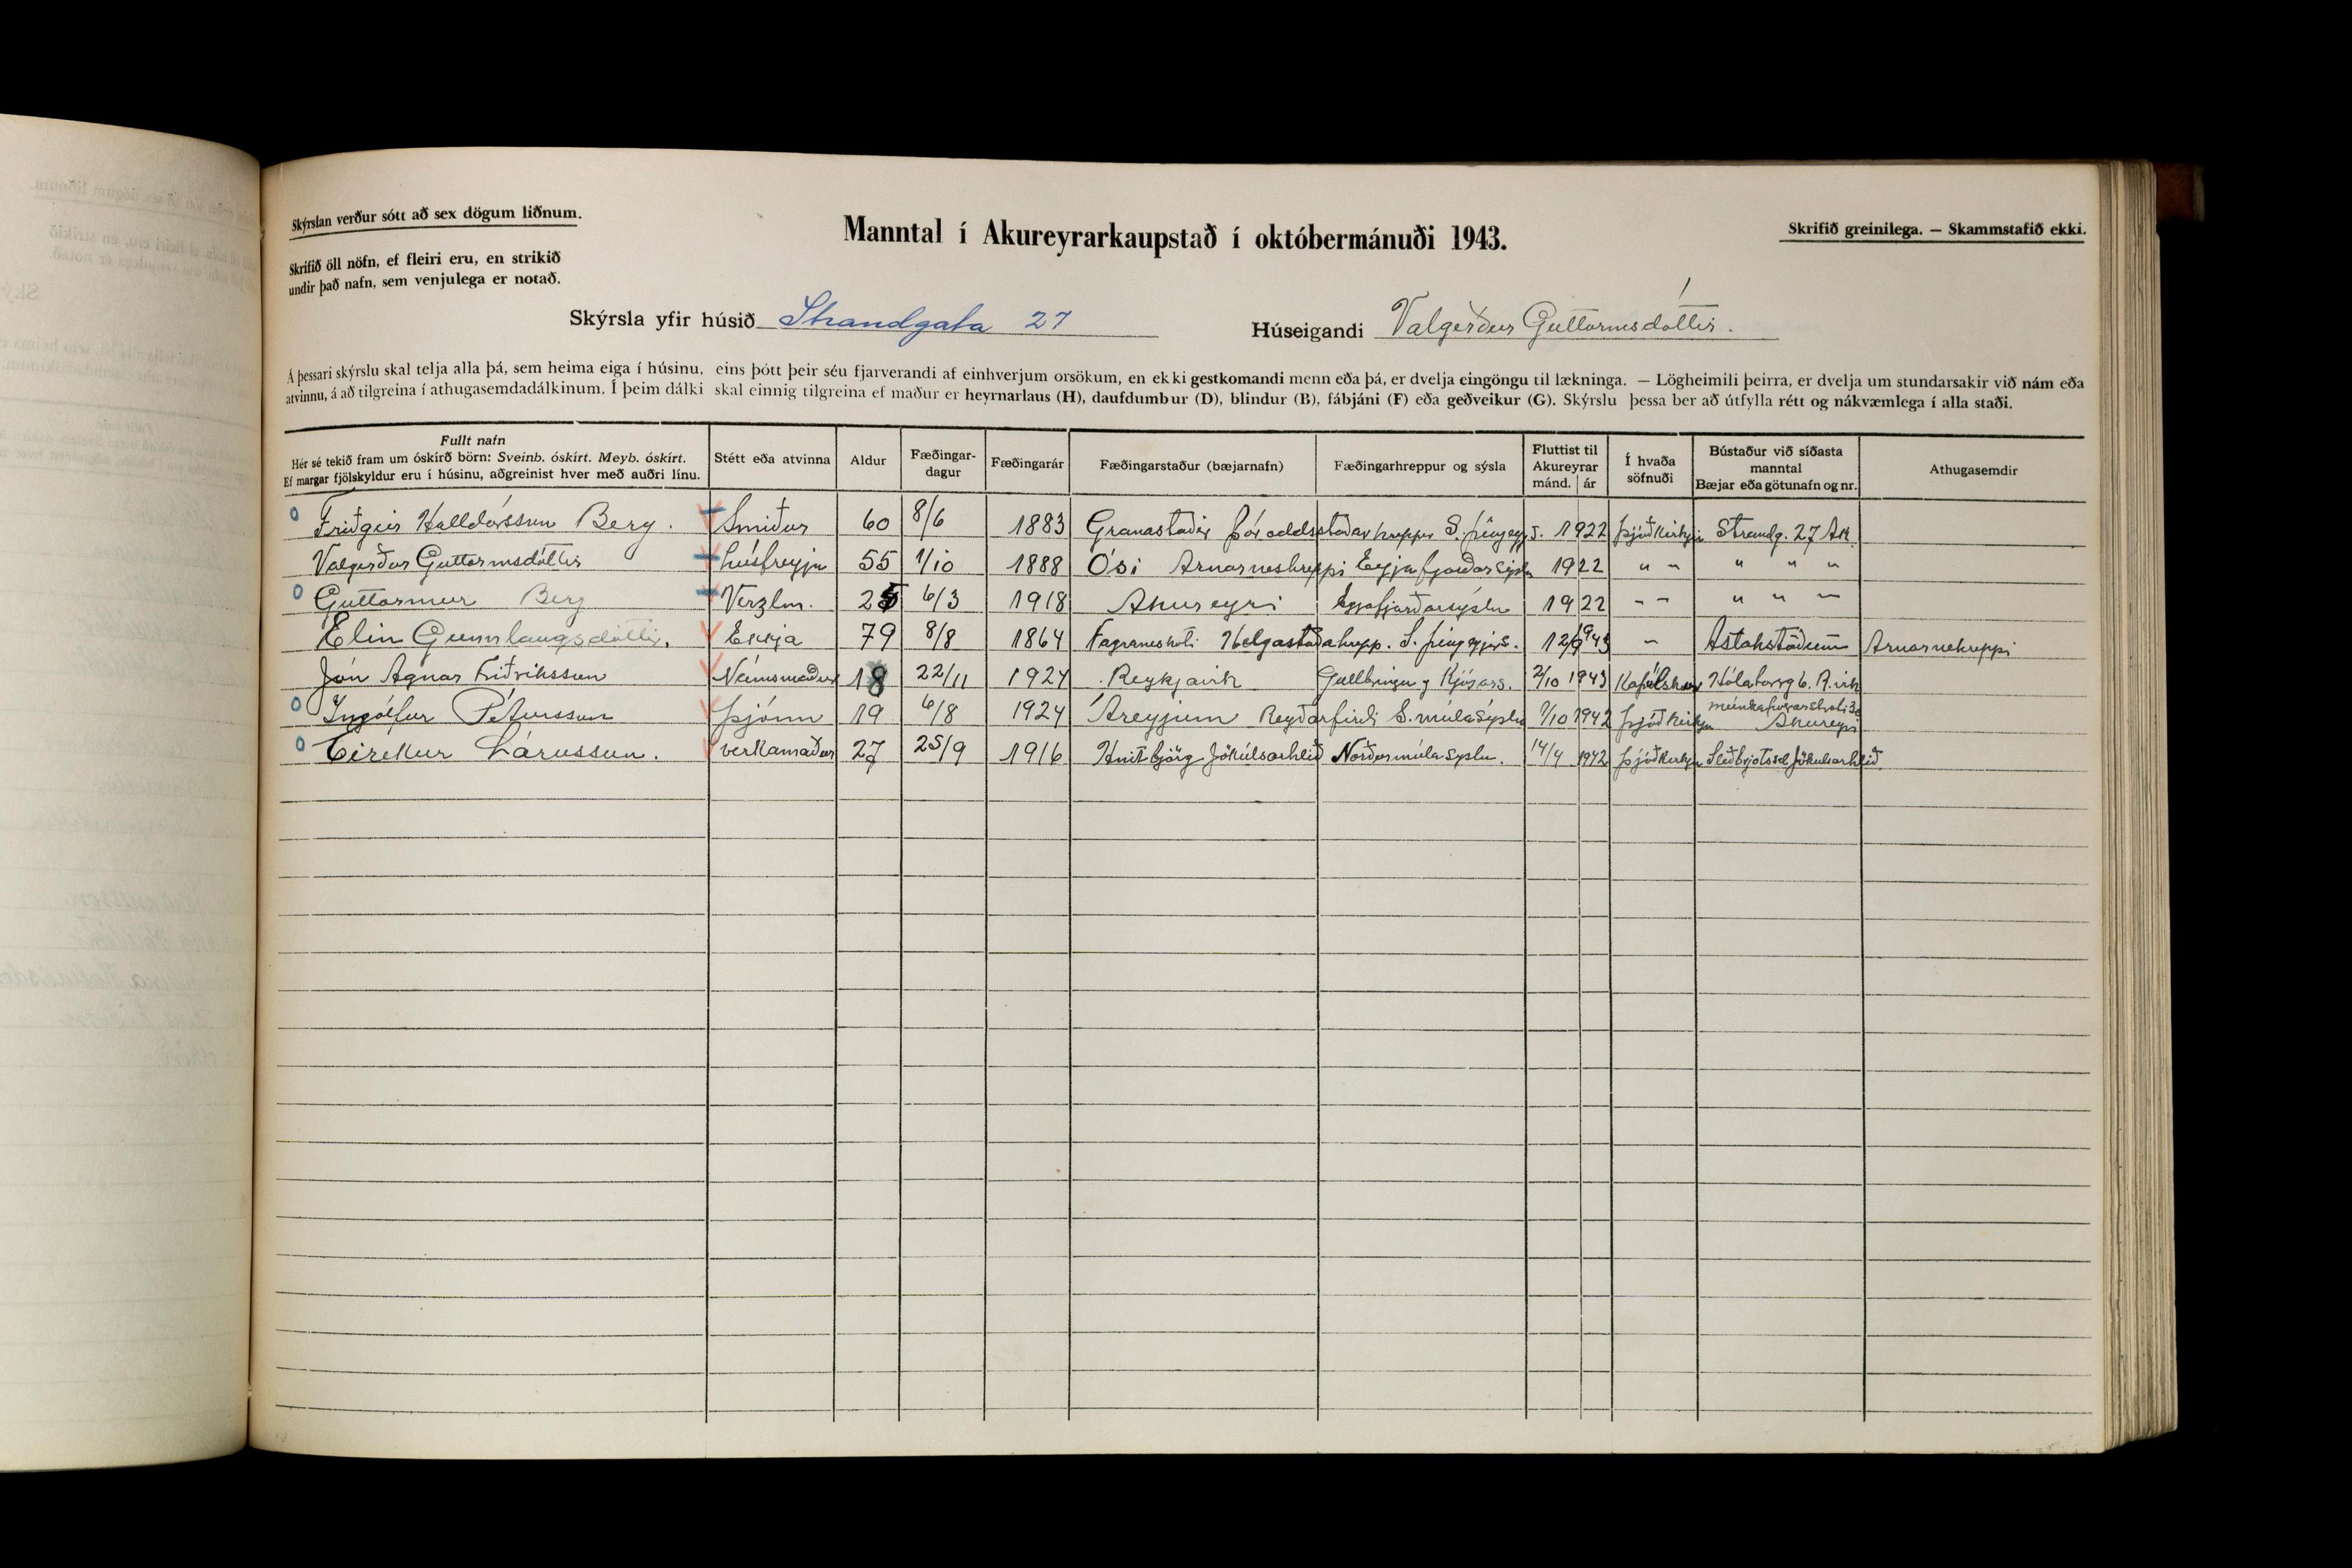 Skýrslan verður sótt að sex dögum liðnum.
Manntal í Akureyrarkaupstað í októbermánuði 1943.
Skrifið greinilega. — Skammstafið ekki.
Skrifið öll nöfn, ef fleiri eru, en strikið
undir það nafn, sem venjulega er notað.
Skýrsla yfir húsið Strandgata 27 Húseigandi Valgerður Guttormsdóttir.
Á þessari skýrslu skal telja alla þá, sem heima eiga í húsinu, eins þótt þeir séu fjarverandi af einhverjum orsökum, en ekki gestkomandi menn eða þá, er dvelja eingöngu til lækninga. — Lögheimili þeirra, er dvelja um stundarsakir við nám eða
atvinnu, á að tilgreina í athugasemdadálkinum. Í þeim dálki skal einnig tilgreina ef maður er heyrnarlaus (H), daufdumbur (D), blindur (B), fábjáni (F) eða geðveikur (G). Skýrslu þessa ber að útfylla rétt og nákvæmlega í alla staði.
Fullt nafn
Hér sé tekið fram um óskírð börn: Sveinb. óskírt. Meyb. óskírt.
Ef margar fjölskyldur eru í húsinu, aðgreinist hver með auðri línu.
Stétt eða atvinna
Aldur
Fæðingar-
dagur
Fæðingarár
Fæðingarstaður (bæjarnafn)
Fæðingarhreppur og sýsla
Fluttist til
Akureyrar
mánd. | ár
Í hvaða
söfnuði
Bústaður við síðasta
manntal
Bæjar eða götunafn og nr.
Athugasemdir
Friðgeir Halldórsson Berg. Smiður 60 8/6 1883 Granastaðir Þóroddsstaðarhreppur S. Þingeyj.s. 1922 Þjóðkirkju Strandg. 27 Ak.
Valgerður Guttormsdóttir húsfreyja 55 1/10 1888 Ósi Arnarneshreppi Eyjafjarðarsýslu 1922 " " " " "
Guttormur Berg Verzlm. 25 6/3 1918 Akureyri Eyjafjarðarsýslu 1922 " " " " "
Elín Gunnlaugsdóttir. Ekkja 79 8/8 1864 Fagraneskoti Helgastaðahrepp. S. Þingeyjars. 12/9 1943 — Arnarnehreppi
Jón Agnar Friðriksson Námsmaður 18 22/11 1924 Reykjavík Gullbringu og Kjósars. 2/10 1943 Hólatorg 6. R.vík
Ingólfur Pétursson Þjónn 19 6/8 1924 Áreyjum Reyðarfirði S. múlasýslu 1/10 1942 Þjóðkirkju Akureyri
Eirekur Lárusson. verkamaður 27 25/9 1916 Hnitbjörg Jökúlsárhlíð Norðurmúlasýslu. 14/4 1942 Þjóðkirkju Sleðbrjótssel Jökulsárhlíð